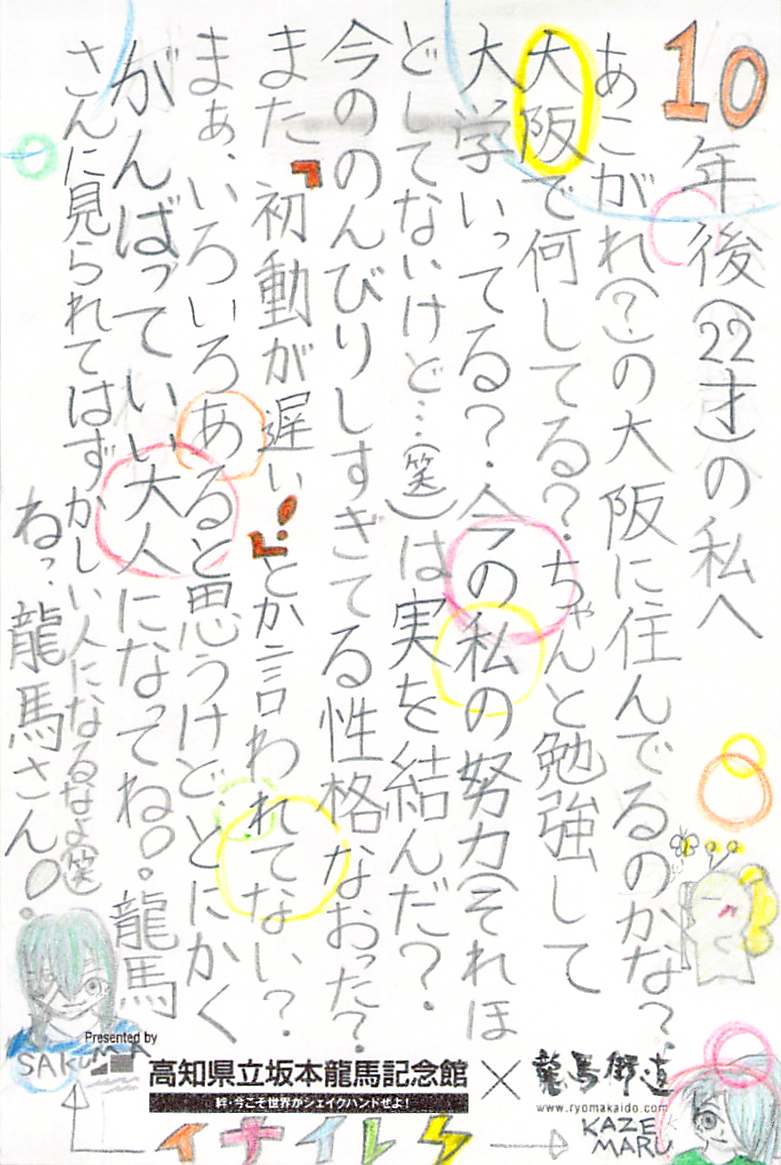 10年後(22才)の私へ
あこがれ(?)の大阪に住んでるのかな?
大阪で何してる?ちゃんと勉強して
大学いってる?今の私の努力(それほ
どしてないけど…(笑))は実を結んだ?
今ののんびりしすぎてる性格なおった?
また「初動が遅い!」とか言われてない?
まぁ、いろいろあると思うけど、とにかく
がんばっていい大人になってね!龍馬
さんに見られてはずかしい人になるなよ(笑)
ね?龍馬さん!
Presented by
SAKUMA
高知県立坂本龍馬記念館×龍馬街道
絆・今こそ世界がシェイクハンドせよ!
www.ryomakaido.com
KAZE
MARU
イナイレ